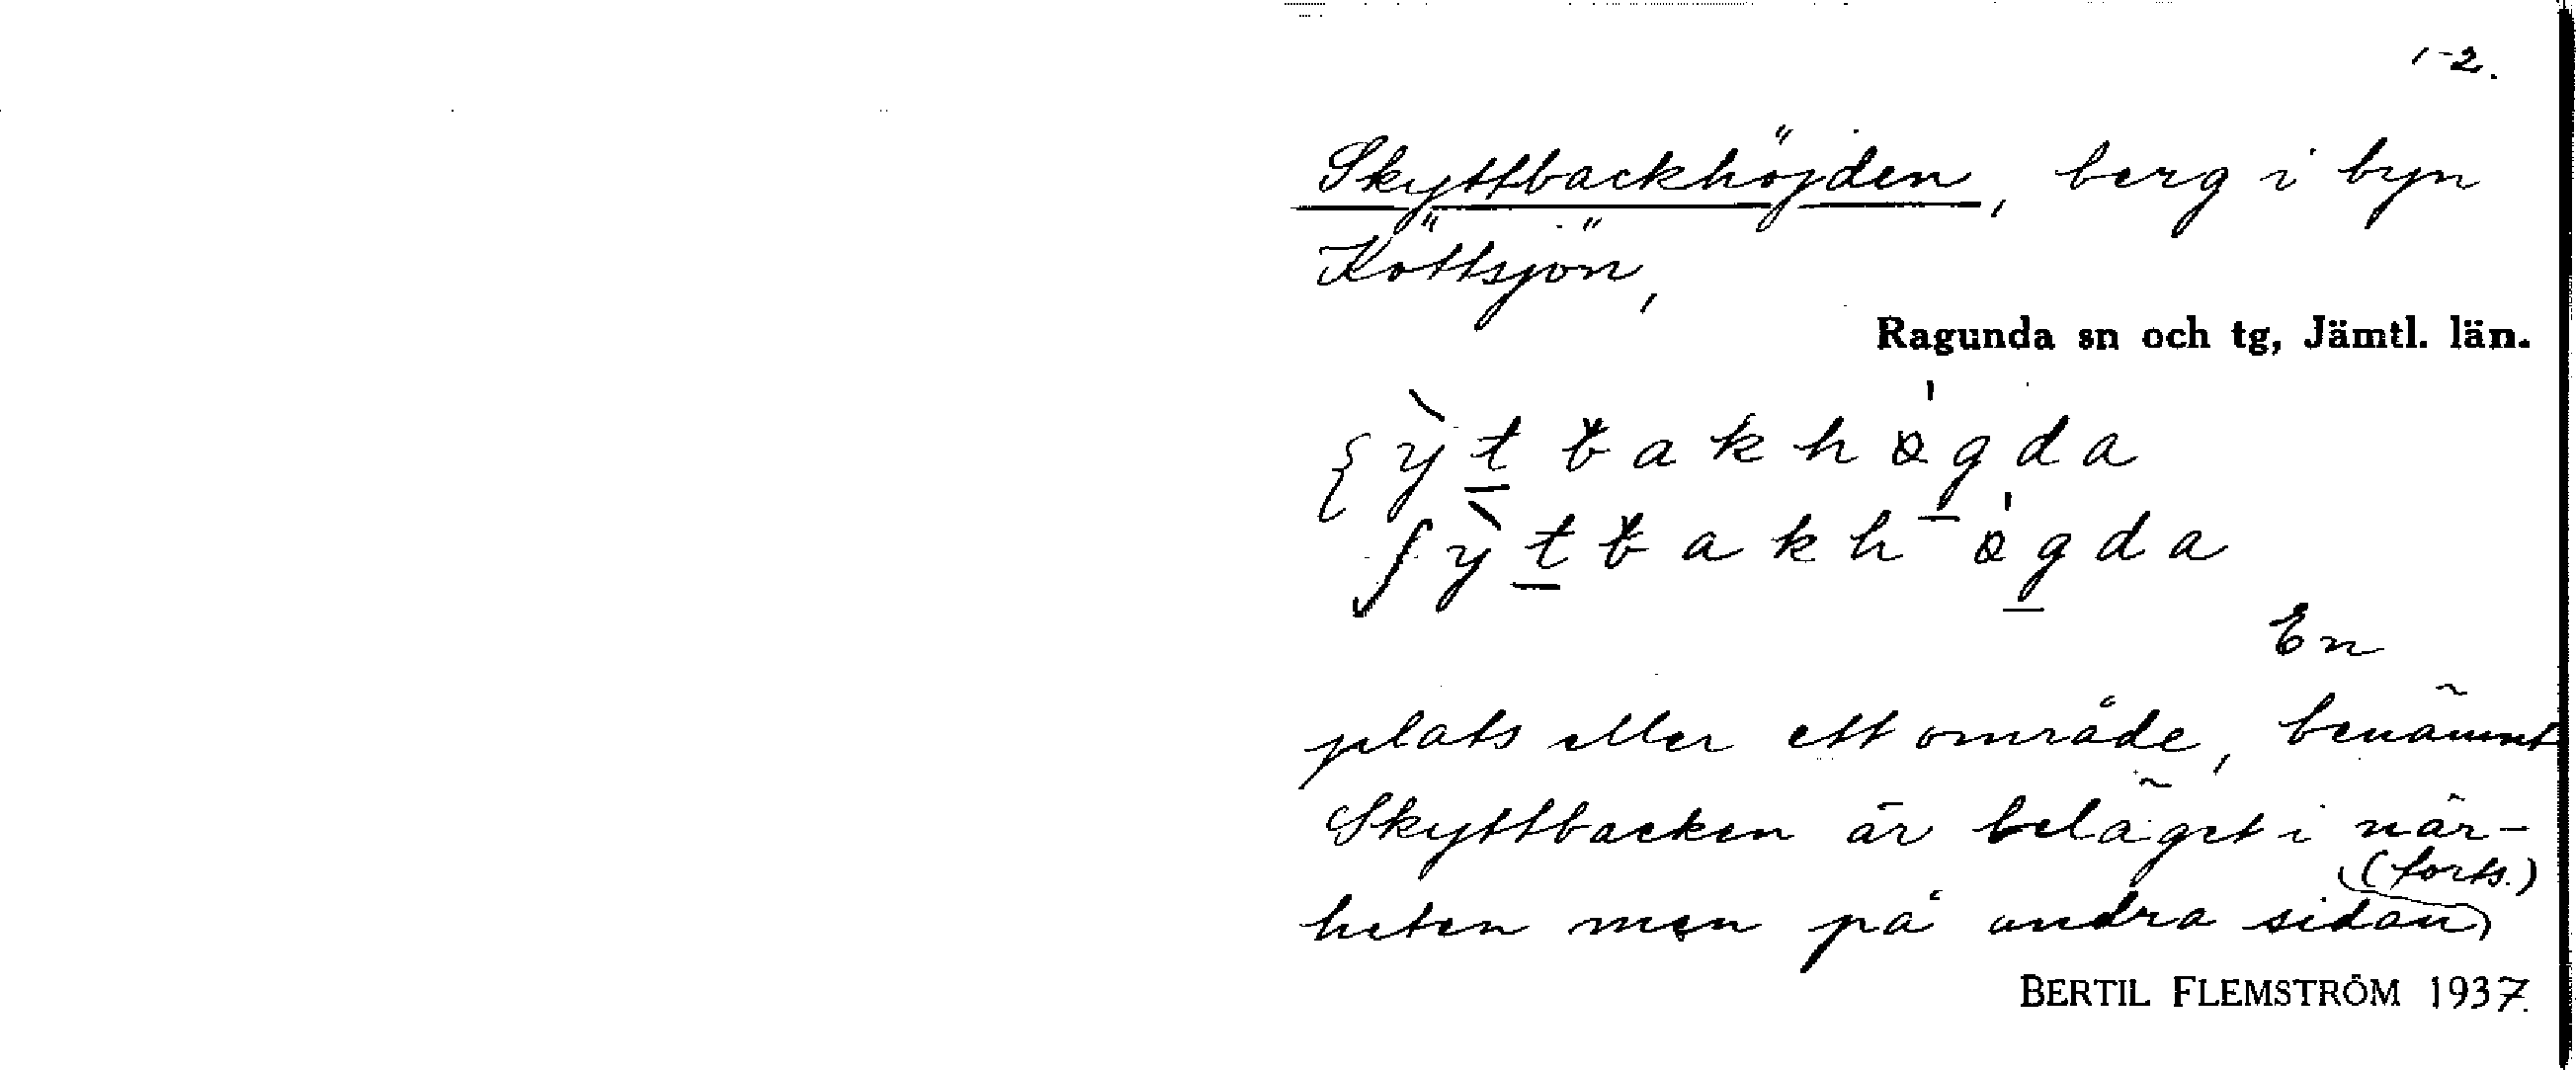 1-2.
Skyttbackhöjden, berg i byn
Köttsjön,
Ragunda sn och tg, Jämtl. län.
En
plats eller ett område, benämnt
Skyttbacken är beläget i när-
heten men på andra sidan
(forts.)
BERTIL FLEMSTRÖM 1937.